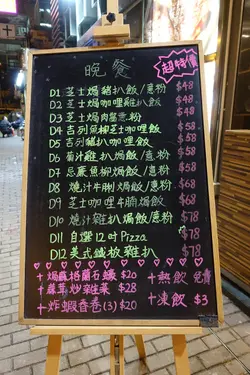 晚餐
超特價
D1 芝士焗豬扒飯/意粉 $48
D2 芝士焗咖喱雞扒飯 $48
D3 芝士焗肉醬意粉 $48
D4 吉列魚柳芝士咖喱飯 $58
D5 吉列豬扒咖喱飯 $58
D6 葡汁雞扒焗飯/意粉 $58
D7 忌廉魚柳焗飯/意粉 $58
D8 燒汁牛脷焗飯/意粉 $68
D9 芝士咖喱牛腩焗飯 $68
D10 燒汁雜扒焗飯/意粉 $78
D11 自選12吋Pizza $78
D12 美式鐵板雜扒 $78
+焗蘇格蘭石蠔 $20
+蒜茸炒雜菜 $28
+炸蝦春卷(3) $20
+熱飲 免費
+凍飲 $3